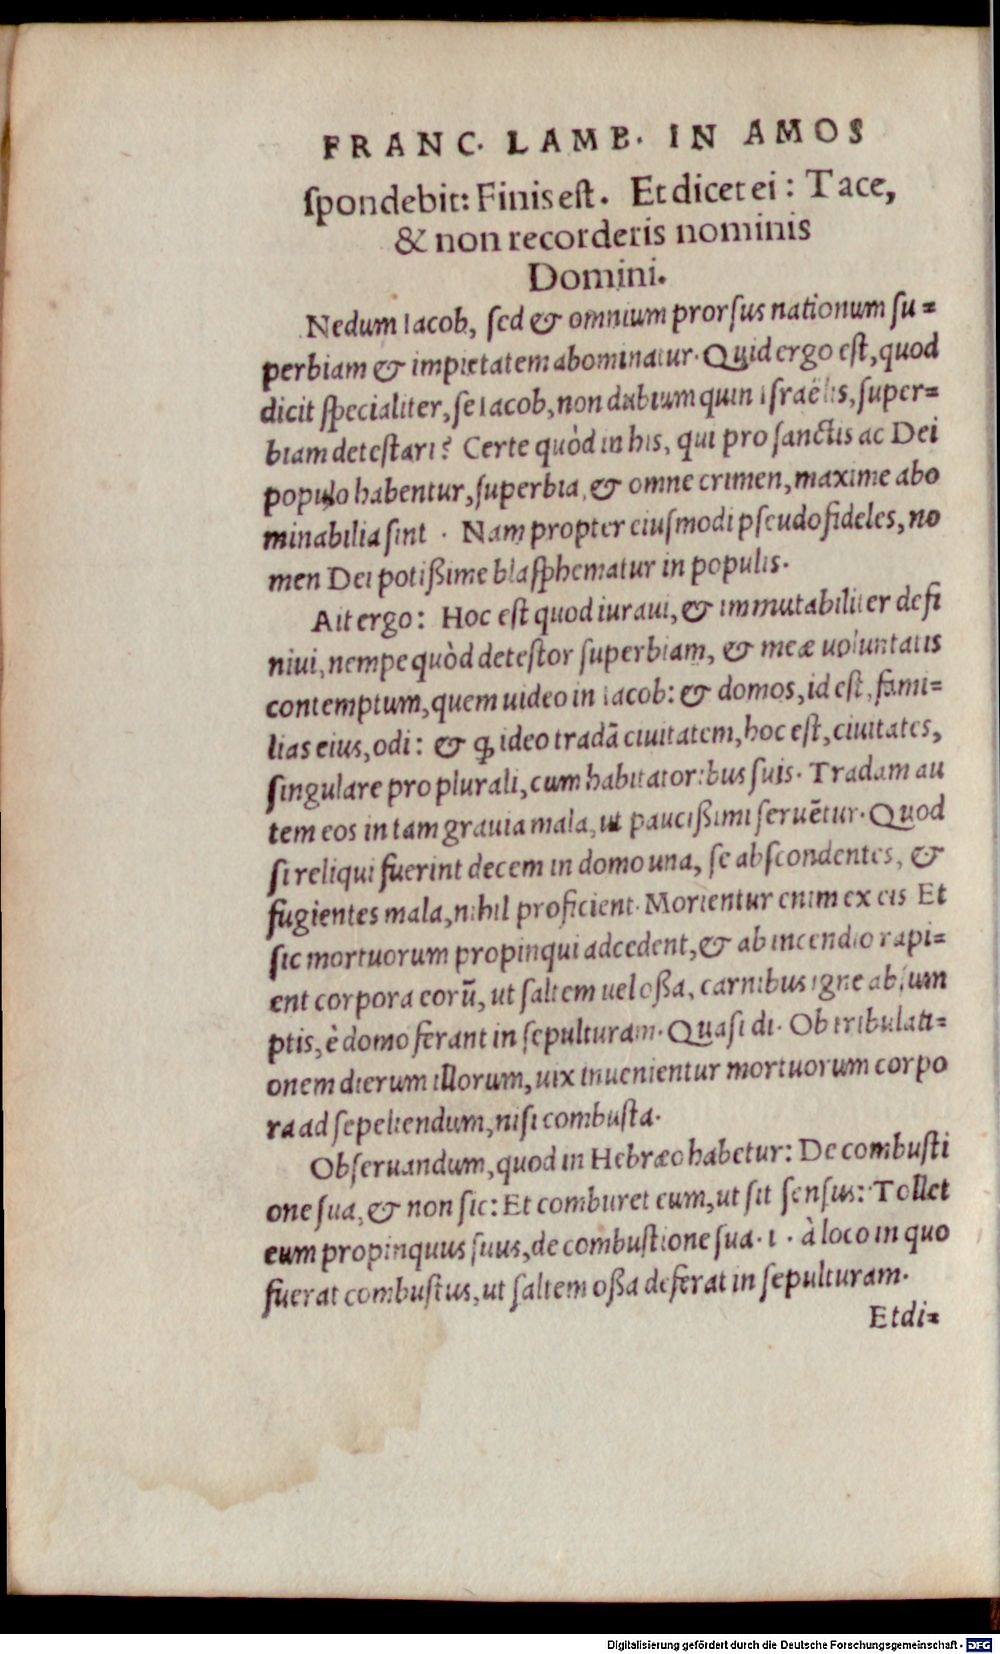 FRANC. LAMB. IN AMOS
ſpondebit: Finis eſt. Et dicet ei: Tace,
& non recorderis nominis
Domini.
Nedum Iacob, ſed & omnium prorſus nationum ſu=
perbiam & impietatem abominatur. Quid ergo eſt, quod
dicit ſpecialiter, ſe Iacob, non dubium quin Iſraëlis, ſuper=
biam deteſtari? Certe quòd in his, qui pro ſanctis ac Dei
populo habentur, ſuperbia, & omne crimen, maxime abo
minabilia ſint. Nam propter eiuſmodi pſeudofideles, no
men Dei potißime blaſphematur in populis.
Ait ergo: Hoc eſt quod iuraui, & immutabiliter defi
niui, nempe quòd deteſtor ſuperbiam, & meæ uoluntatis
contemptum, quem uideo in Iacob: & domos, id eſt, fami=
lias eius, odi: & ꝙ ideo tradã ciuitatem, hoc eſt, ciuitates,
ſingulare pro plurali, cum habitatoribus ſuis. Tradam au
tem eos in tam grauia mala, ut paucißimi ſeruẽtur. Quod
ſi reliqui fuerint decem in domo una, ſe abſcondentes, &
fugientes mala, nihil proficient. Morientur enim ex eis Et
ſic mortuorum propinqui adcedent, & ab incendio rapi=
ent corpora eorũ, ut ſaltem uel oßa, carnibus igne abſum
ptis, è domo ferant in ſepulturam. Quaſi di. Ob tribulati=
onem dierum illorum, uix inuenientur mortuorum corpo
ra ad ſepeliendum, niſi combuſta.
Obſeruandum, quod in Hebræo habetur: De combuſti
one ſua, & non ſic: Et comburet eum, ut ſit ſenſus: Tollet
eum propinquus ſuus, de combuſtione ſua. i. à loco in quo
fuerat combuſtus, ut ſaltem oßa deferat in ſepulturam.
Et di=
Digitalisierung gefördert durch die Deutsche Forschungsgemeinschaft - DFG